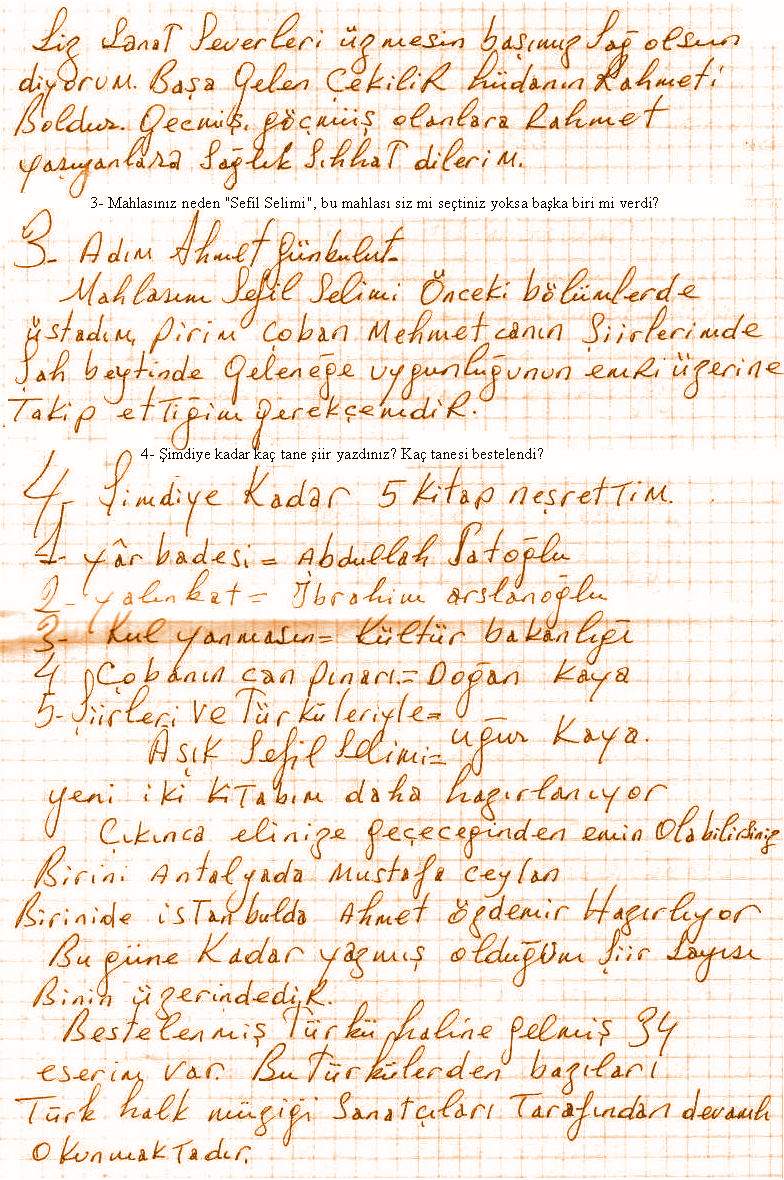 Siz Sanat Severleri üzmesin başımız Sağ olsun
diyorum. Başa Gelen Çekilir hüdanın Rahmeti
Boldur. Geçmiş, göçmüş olanlara Rahmet
yaşıyanlara Sağlık Sıhhat dilerim.
3- Mahlasınız neden "Sefil Selimi", bu mahlası siz mi seçtiniz yoksa başka biri mi verdi?
3- Adım Ahmet Günbulut-
Mahlasım Sefil Selimi Önceki bölümlerde
üstadım, pirim Çoban Mehmet canın Şiirlerimde
Şah beytinde Geleneğe uygunluğunun emri üzerine
Takip ettiğim gerekçemdir.
4- Şimdiye kadar kaç tane şiir yazdınız? Kaç tanesi bestelendi?
4- Şimdiye Kadar 5 Kitap neşrettim.
1- yâr badesi = Abdullah Satoğlu
2- yalınkat = İbrahim arslanoğlu
3- Kul yanmasın = Kültür bakanlığı
4 Çobanın can pınarı = Doğan Kaya
5- Şiirleri ve Türküleriyle =
Aşık Sefil Selimi = uğur Kaya.
yeni iki Kitabım daha hazırlanıyor
Çıkınca elinize geçeceğinden emin Olabilirsiniz
Birini Antalyada Mustafa Ceylan
Birinide istanbulda Ahmet özdemir Hazırlıyor
Bu güne Kadar yazmış olduğum Şiir Sayısı
Binin üzerindedir.
Bestelenmiş Türkü haline gelmiş 34
eserim var. Bu Türkülerden bazıları
Türk halk müziği Sanatçıları Tarafından devamlı
Okunmaktadır.